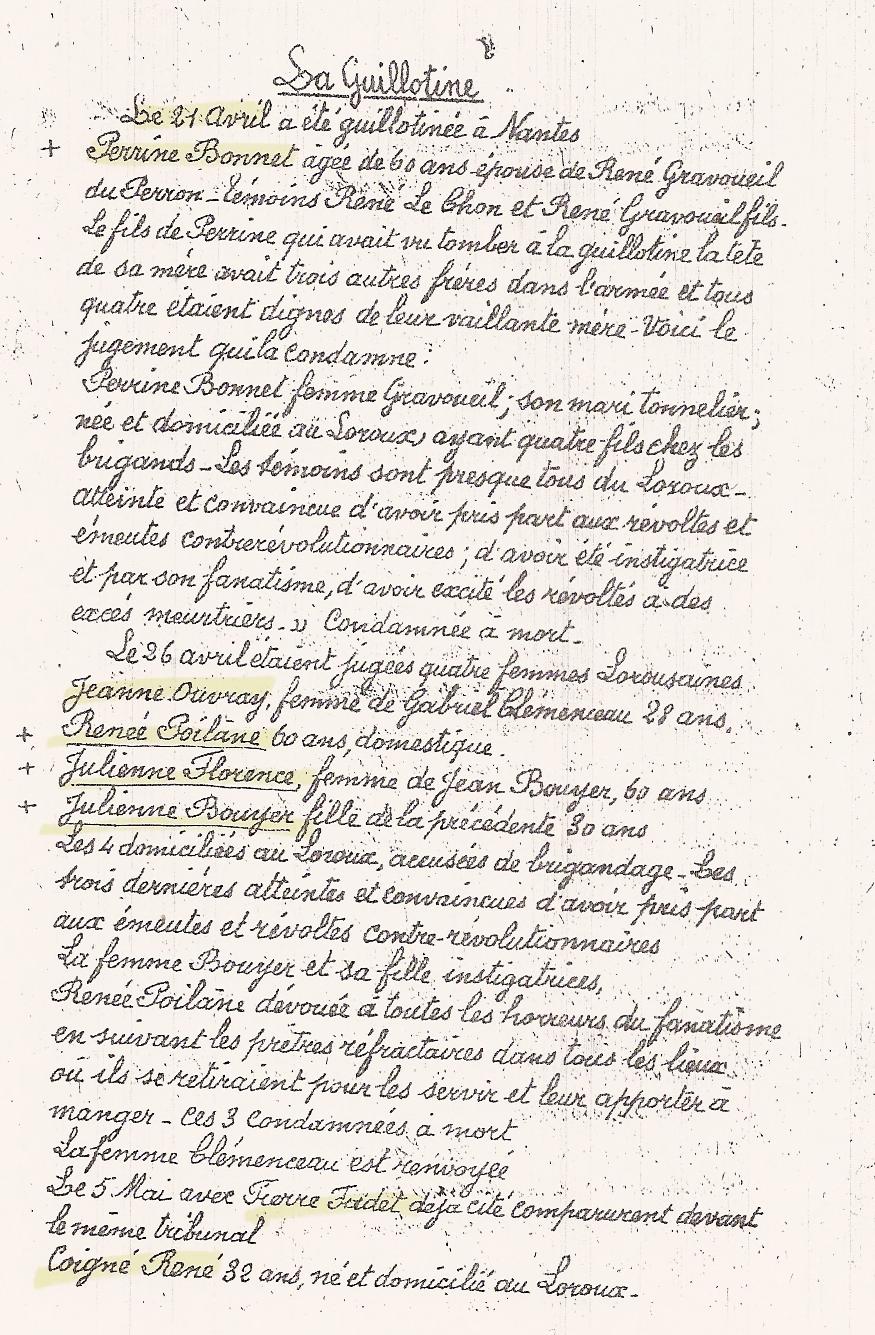 La Guillotine
Le 21 Avril a été guillotinée à Nantes
+ Perrine Bonnet âgée de 60 ans épouse de René Gravoueil
du Perron - témoins René Le Chon et René Gravoueil fils.
Le fils de Perrine qui avait vu tomber à la guillotine la tete
de sa mère avait trois autres frères dans l'armée et tous
quatre étaient dignes de leur vaillante mère - Voici le
jugement qui la condamne :
Perrine Bonnet femme Gravoueil ; son mari tonnelier ;
née et domiciliée au Loroux, ayant quatre fils chez les
brigands - Les témoins sont presque tous du Loroux -
atteinte et convaincue d'avoir pris part aux révoltes et
émeutes contrerévolutionnaires ; d'avoir été instigatrice
et par son fanatisme, d'avoir excité les révoltés à des
excès meurtriers - » Condamnée à mort -
Le 26 avril étaient jugées quatre femmes Lorousaines
Jeanne Ouvray, femme de Gabriel Clémenceau 28 ans.
+ Renée Poilâne 60 ans, domestique.
+ Julienne Florence, femme de Jean Bouyer, 60 ans
+ Julienne Bouyer fille de la précédente 30 ans
Les 4 domiciliées au Loroux, accusées de brigandage - Les
trois dernières atteintes et convaincues d'avoir pris part
aux émeutes et révoltes contre-révolutionnaires
La femme Bouyer et sa fille instigatrices,
Renée Poilâne dévouée à toutes les horreurs du fanatisme
en suivant les prêtres réfractaires dans tous les lieux
où ils se retiraient pour les servir et leur apporter à
manger - Ces 3 condamnées à mort
La femme Clémenceau est renvoyée
Le 5 Mai avec Pierre Fadet déjà cité comparurent devant
le même tribunal
Coigné René 32 ans, né et domicilié au Loroux -